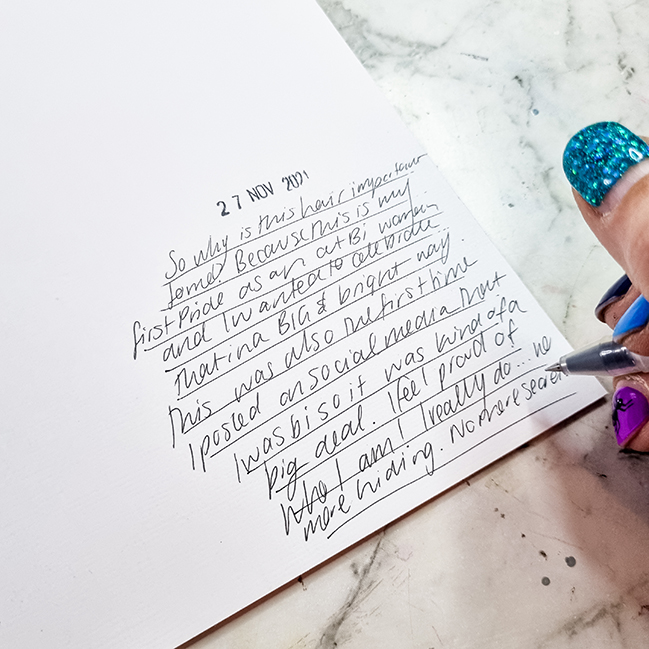 27 NOV 2021
So why is this hair important
to me? Because this is my
first Pride as an out Bi woman
and I wanted to celebrate
that in a BIG & bright way.
This was also the first time
I posted on social media that
I was bi so it was kind of a
big deal. I feel proud of
who I am I really do... no
more hiding. No more secrets